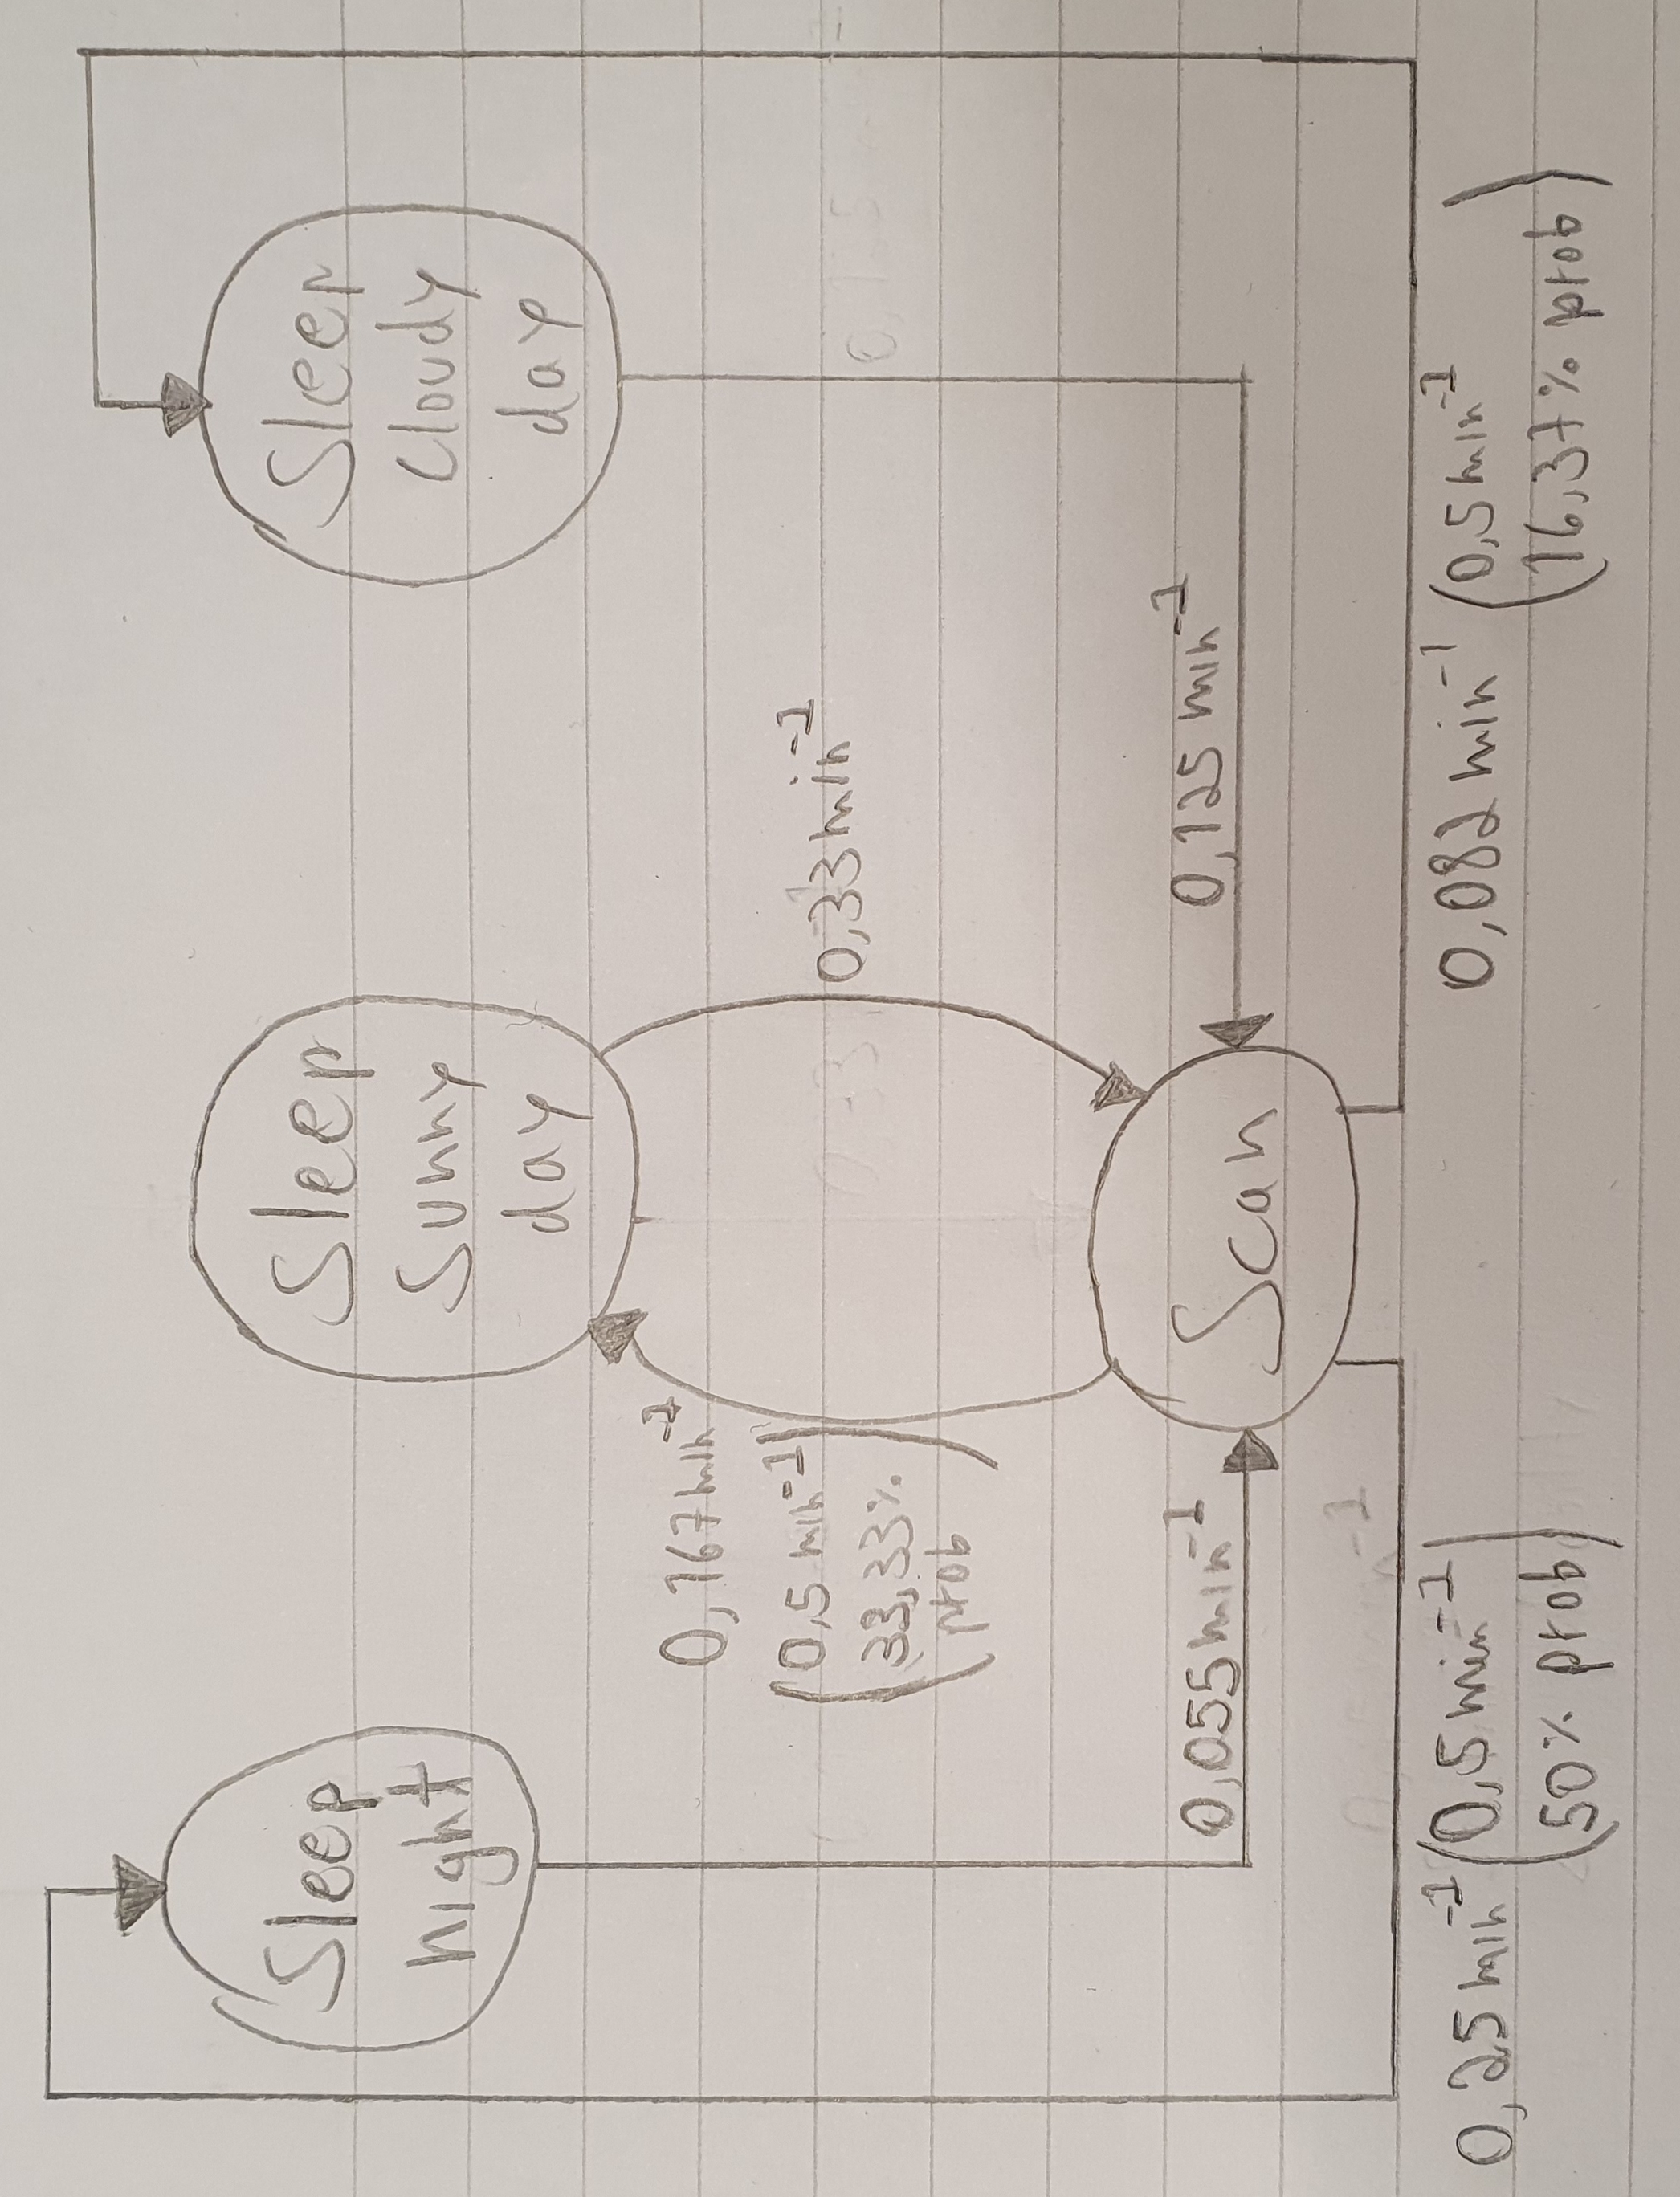 Sleep
night
Sleep
Sunny
day
Sleep
Cloudy
day
0,167 min⁻¹
(0,5 min⁻¹
33,33%
prob)
0,33 min⁻¹
0,055 min⁻¹
Scan
0,125 min⁻¹
0,25 min⁻¹ (0,5 min⁻¹
50% prob)
0,082 min⁻¹ (0,5 min⁻¹
16,37% prob)